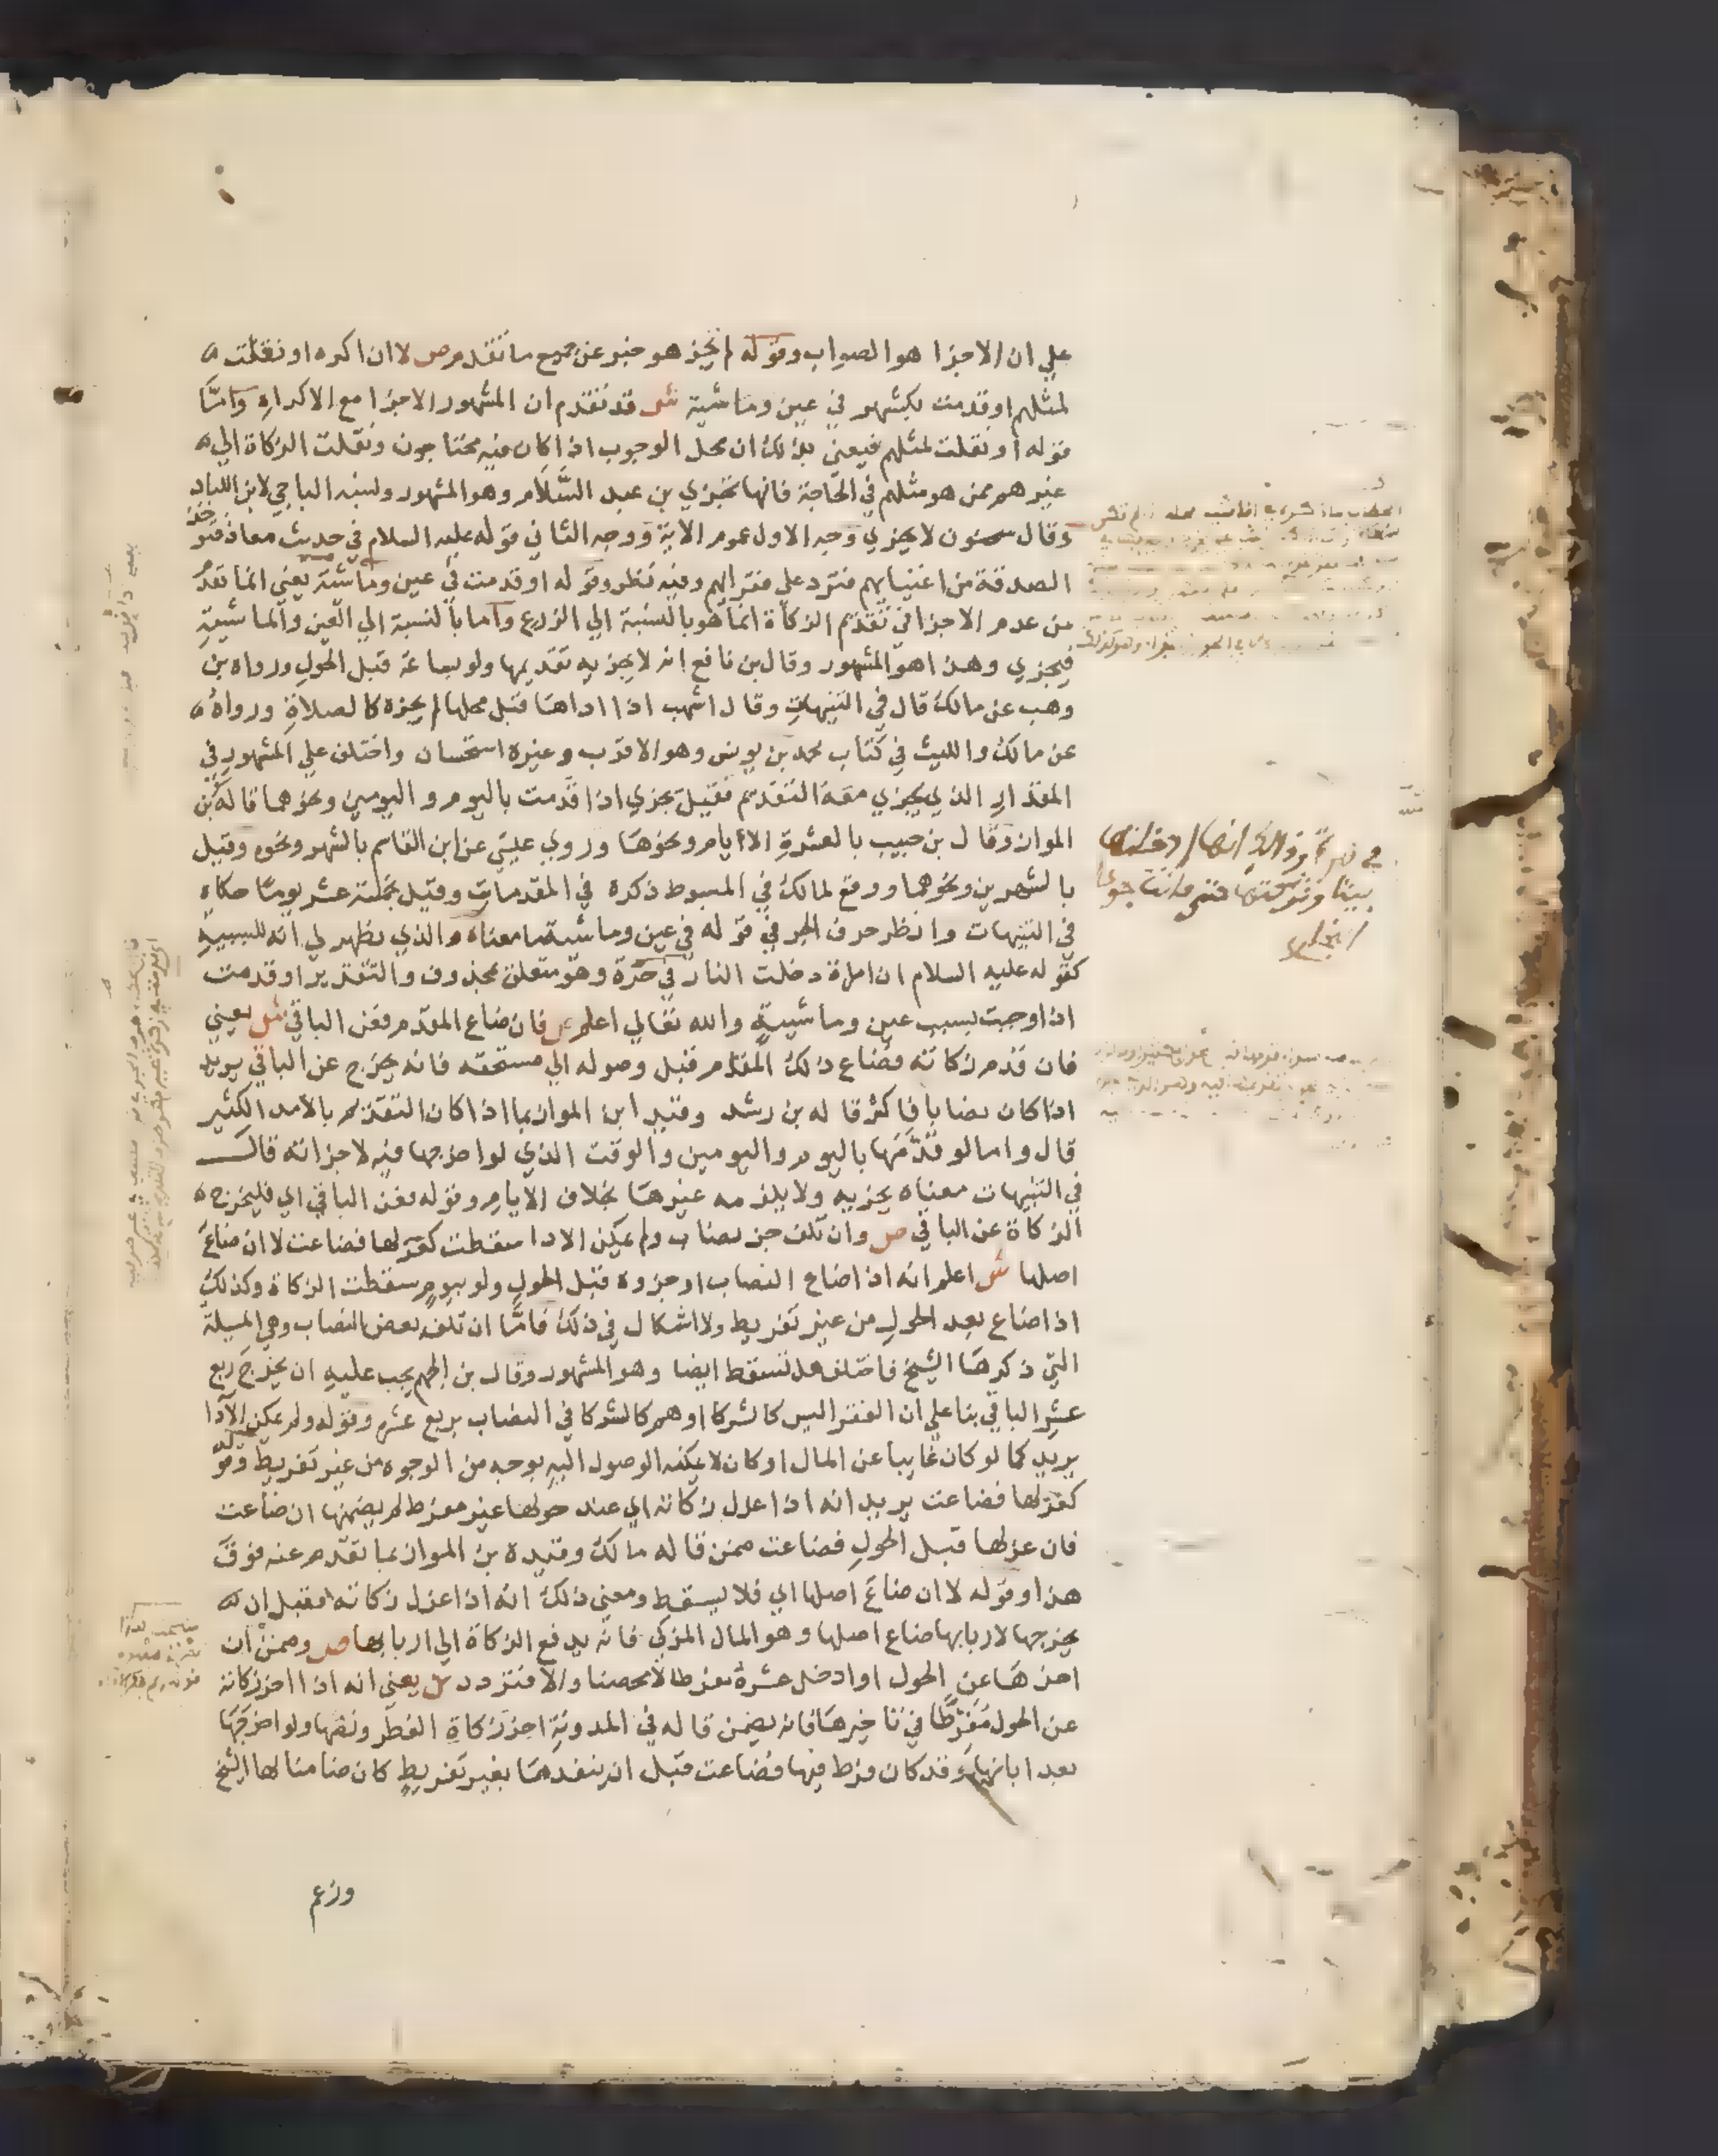 علي ان الاجزا هو الصواب وقوله لم تجز هو خبر عن جميع ما تقدم ص لا ان اكره او نقلت
لمثلهم او قدمت بكشهر في عين وماشية ش قد تقدم ان المشهور الاجزا مع الاكراه وامّا
قوله او نقلت لمثلهم فيعني بذلك ان محل الوجوب اذا كان فيه محتاجون ونقلت الزكاة الي
غيرهم ممن هو مثلهم في الحاجة فانها تجزي بن عبد السَّلام وهو المشهور ونسبه الباجي لابن اللباد
وقال سحنون لا يجزي وجه الاول عموم الاية ووجه الثاني قوله عليه السلام في حديث معاذ فتوخذ
الصدقة من اغنيايهم فترد علي فقرايهم وفيه نظر وقوله او قدمت في عين وماشية يعني انما تقدم
من عدم الاجزا في تقديم الزكاة انما هو بالنسبة الي الزرع واما بالنسبة الي العين والماشية
فيجزي وهذا هو المشهور وقال بن نافع انه لا يجزيه تقديمها ولو بساعة قبل الحول ورواه بن
وهب عن مالك قال في التنبيهات وقال اشهب اذا اداها قبل محلها لم يجزه كالصلاة ورواه
عن مالك والليث في كتاب محمد بن يونس وهو الاقرب وغيره استحسان واختلف علي المشهور في
المقدار الذي يجزي معه التقديم فقيل يجزي اذا قدمت باليوم واليومين ونحوهما قاله بن
المواز وقال بن حبيب بالعشرة الاايام ونحوها وروي عيسي عن ابن القاسم بالشهر ونحوه وقيل
بالشهرين ونحوهما ووقع لمالك في المبسوط ذكره في المقدمات وقيل بخمسة عشر يوما حكاه
في التنبيهات وانظر حرف الجر في قوله في عين وماشية ما معناه والذي يظهر لي انه للسببية
كقوله عليه السلام ان امراة دخلت النار في هرة وهو متعلق بمحذوف والتقدير او قدمت
اذا وجبت بسبب عين وماشية والله تعالي اعلم ص فان ضاع المقدم فعن الباقي ش يعني
فان قدم زكاته فضاع ذلك المقدم قبل وصوله الي مستحقه فانه يخرج عن الباقي يريد
اذا كان نصابا فاكثر قاله بن رشد وقيد ابن المواز بما اذا كان التقديم بالامد الكثير
قال واما لو قدّمَها باليوم واليومين والوقت الذي لو اخرجها فيه لاجزاته قال
في التنبيهات معناه يجزيه ولا يلزمه غيرها بخلاف الايام وقوله فعن الباقي اي فليخرج
الزكاة عن الباقي ص وان تلف جز نصاب ولم يمكن الادا سقطت كعزلها فضاعت لا ان ضاع
اصلها ش اعلم انه اذا ضاع النصاب او جزوه قبل الحول ولو بيوم سقطت الزكاة وكذلك
اذا ضاع بعد الحول من غير تفريط ولا اشكال في ذلك فامّا ان تلف بعض النصاب وهي المسيلة
التي ذكرها الشيخ فاختلف هل تسقط ايضا وهو المشهور وقال بن الجهم يجب عليه ان يخرج ربع
عشر الباقي بنا علي ان الفقرا ليس كالشركا او هم كالشركا في النصاب بربع عشره وقوله ولم يمكن الادا
يريد كما لو كان غايبا عن المال او كان لا يمكنه الوصول اليه بوجه من الوجوه من غير تفريط وقوله
كعزلها فضاعت يريد انه اذا عزل زكاته اي عند حولها غير مفرط لم يضمنها ان ضاعت
فان عزلها قبل الحول فضاعت ضمن قاله مالك وقيده بن المواز بما تقدم عنه فوق
هذا وقوله لا ان ضاع اصلها اي فلا يسقط ومعني ذلك انه اذا عزل زكاته فقبل ان
يخرجها لاربابها ضاع اصلها وهو المال المزكي فانه يدفع الزكاة الي اربابها ص وضمن ان
اخرها عن الحول او ادخل عشره مفرطا لا محصنا والا فتردد ش يعني انه اذا اخر زكاته
عن الحول مُفَرِّطًا في تاخيرها فانه يضمن قاله في المدونة اخر زكاة الفطر ونصها ولو اخرجها
بعد ابانها وقد كان فرط فيها فضاعت قبل ان ينفدها بغير تفريط كان ضامنا لها الشيخ
وزعم